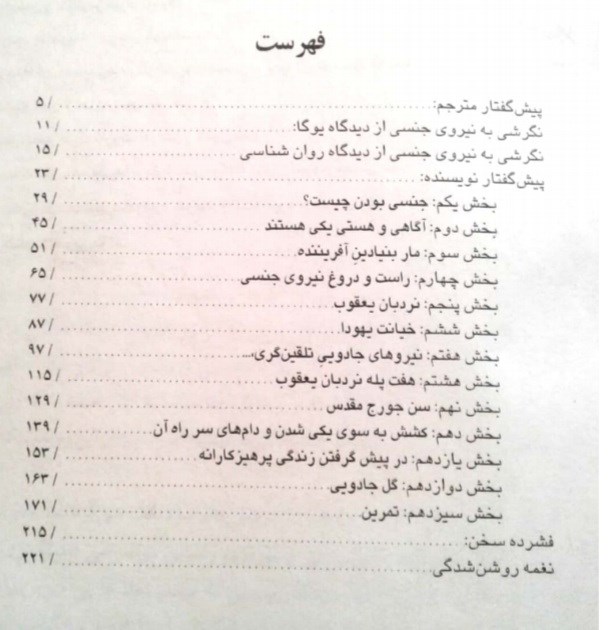 فهرست
پیش‌گفتار مترجم: ........ / ۵
نگرشی به نیروی جنسی از دیدگاه یوگا: ........ / ۱۱
نگرشی به نیروی جنسی از دیدگاه روان شناسی ........ / ۱۵
پیش‌گفتار نویسنده: ........ / ۲۳
بخش یکم: جنسی بودن چیست؟ ........ / ۲۹
بخش دوم: آگاهی و هستی یکی هستند ........ / ۴۵
بخش سوم: مار بنیادینِ آفریننده ........ / ۵۱
بخش چهارم: راست و دروغ نیروی جنسی ........ / ۶۵
بخش پنجم: نردبان یعقوب ........ / ۷۷
بخش ششم: خیانت یهودا ........ / ۸۷
بخش هفتم: نیروهای جادویی تلقین‌گری، ........ / ۹۷
بخش هشتم: هفت پله نردبان یعقوب ........ / ۱۱۵
بخش نهم: سن جورج مقدس ........ / ۱۲۹
بخش دهم: کشش به سوی یکی شدن و دام‌های سر راه آن ........ / ۱۳۹
بخش یازدهم: در پیش گرفتن زندگی پرهیزکارانه ........ / ۱۵۳
بخش دوازدهم: گل جادویی ........ / ۱۶۳
بخش سیزدهم: تمرین ........ / ۱۷۱
فشرده سخن: ........ / ۲۱۵
نغمه روشن‌شدگی ........ / ۲۲۱